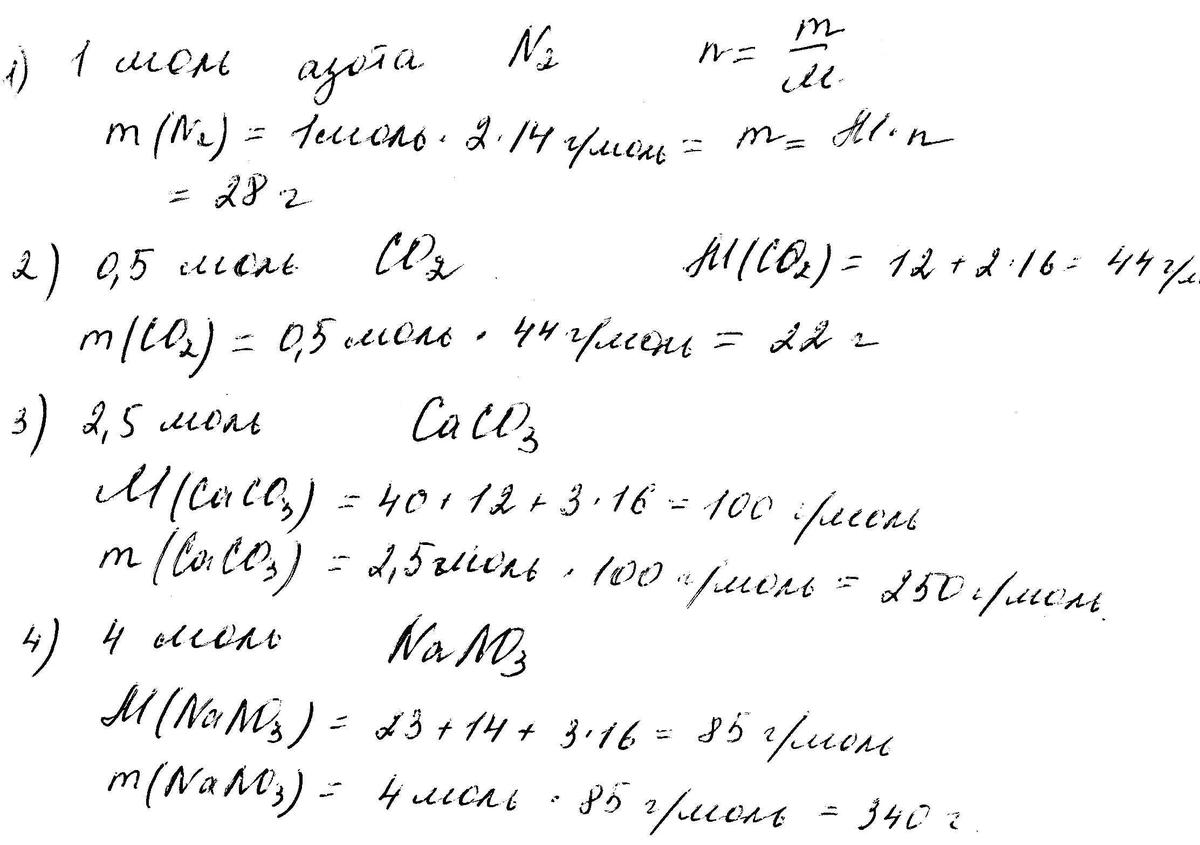 1) 1 моль азота N₂ n = m/M
m(N₂) = 1 моль · 2 · 14 г/моль = m = M · n
= 28 г
2) 0,5 моль CO₂ M(CO₂) = 12 + 2·16 = 44 г/м
m(CO₂) = 0,5 моль · 44 г/моль = 22 г
3) 2,5 моль CaCO₃
M(CaCO₃) = 40 + 12 + 3·16 = 100 г/моль
m(CaCO₃) = 2,5 моль · 100 г/моль = 250 г/моль.
4) 4 моль NaNO₃
M(NaNO₃) = 23 + 14 + 3·16 = 85 г/моль
m(NaNO₃) = 4 моль · 85 г/моль = 340 г.